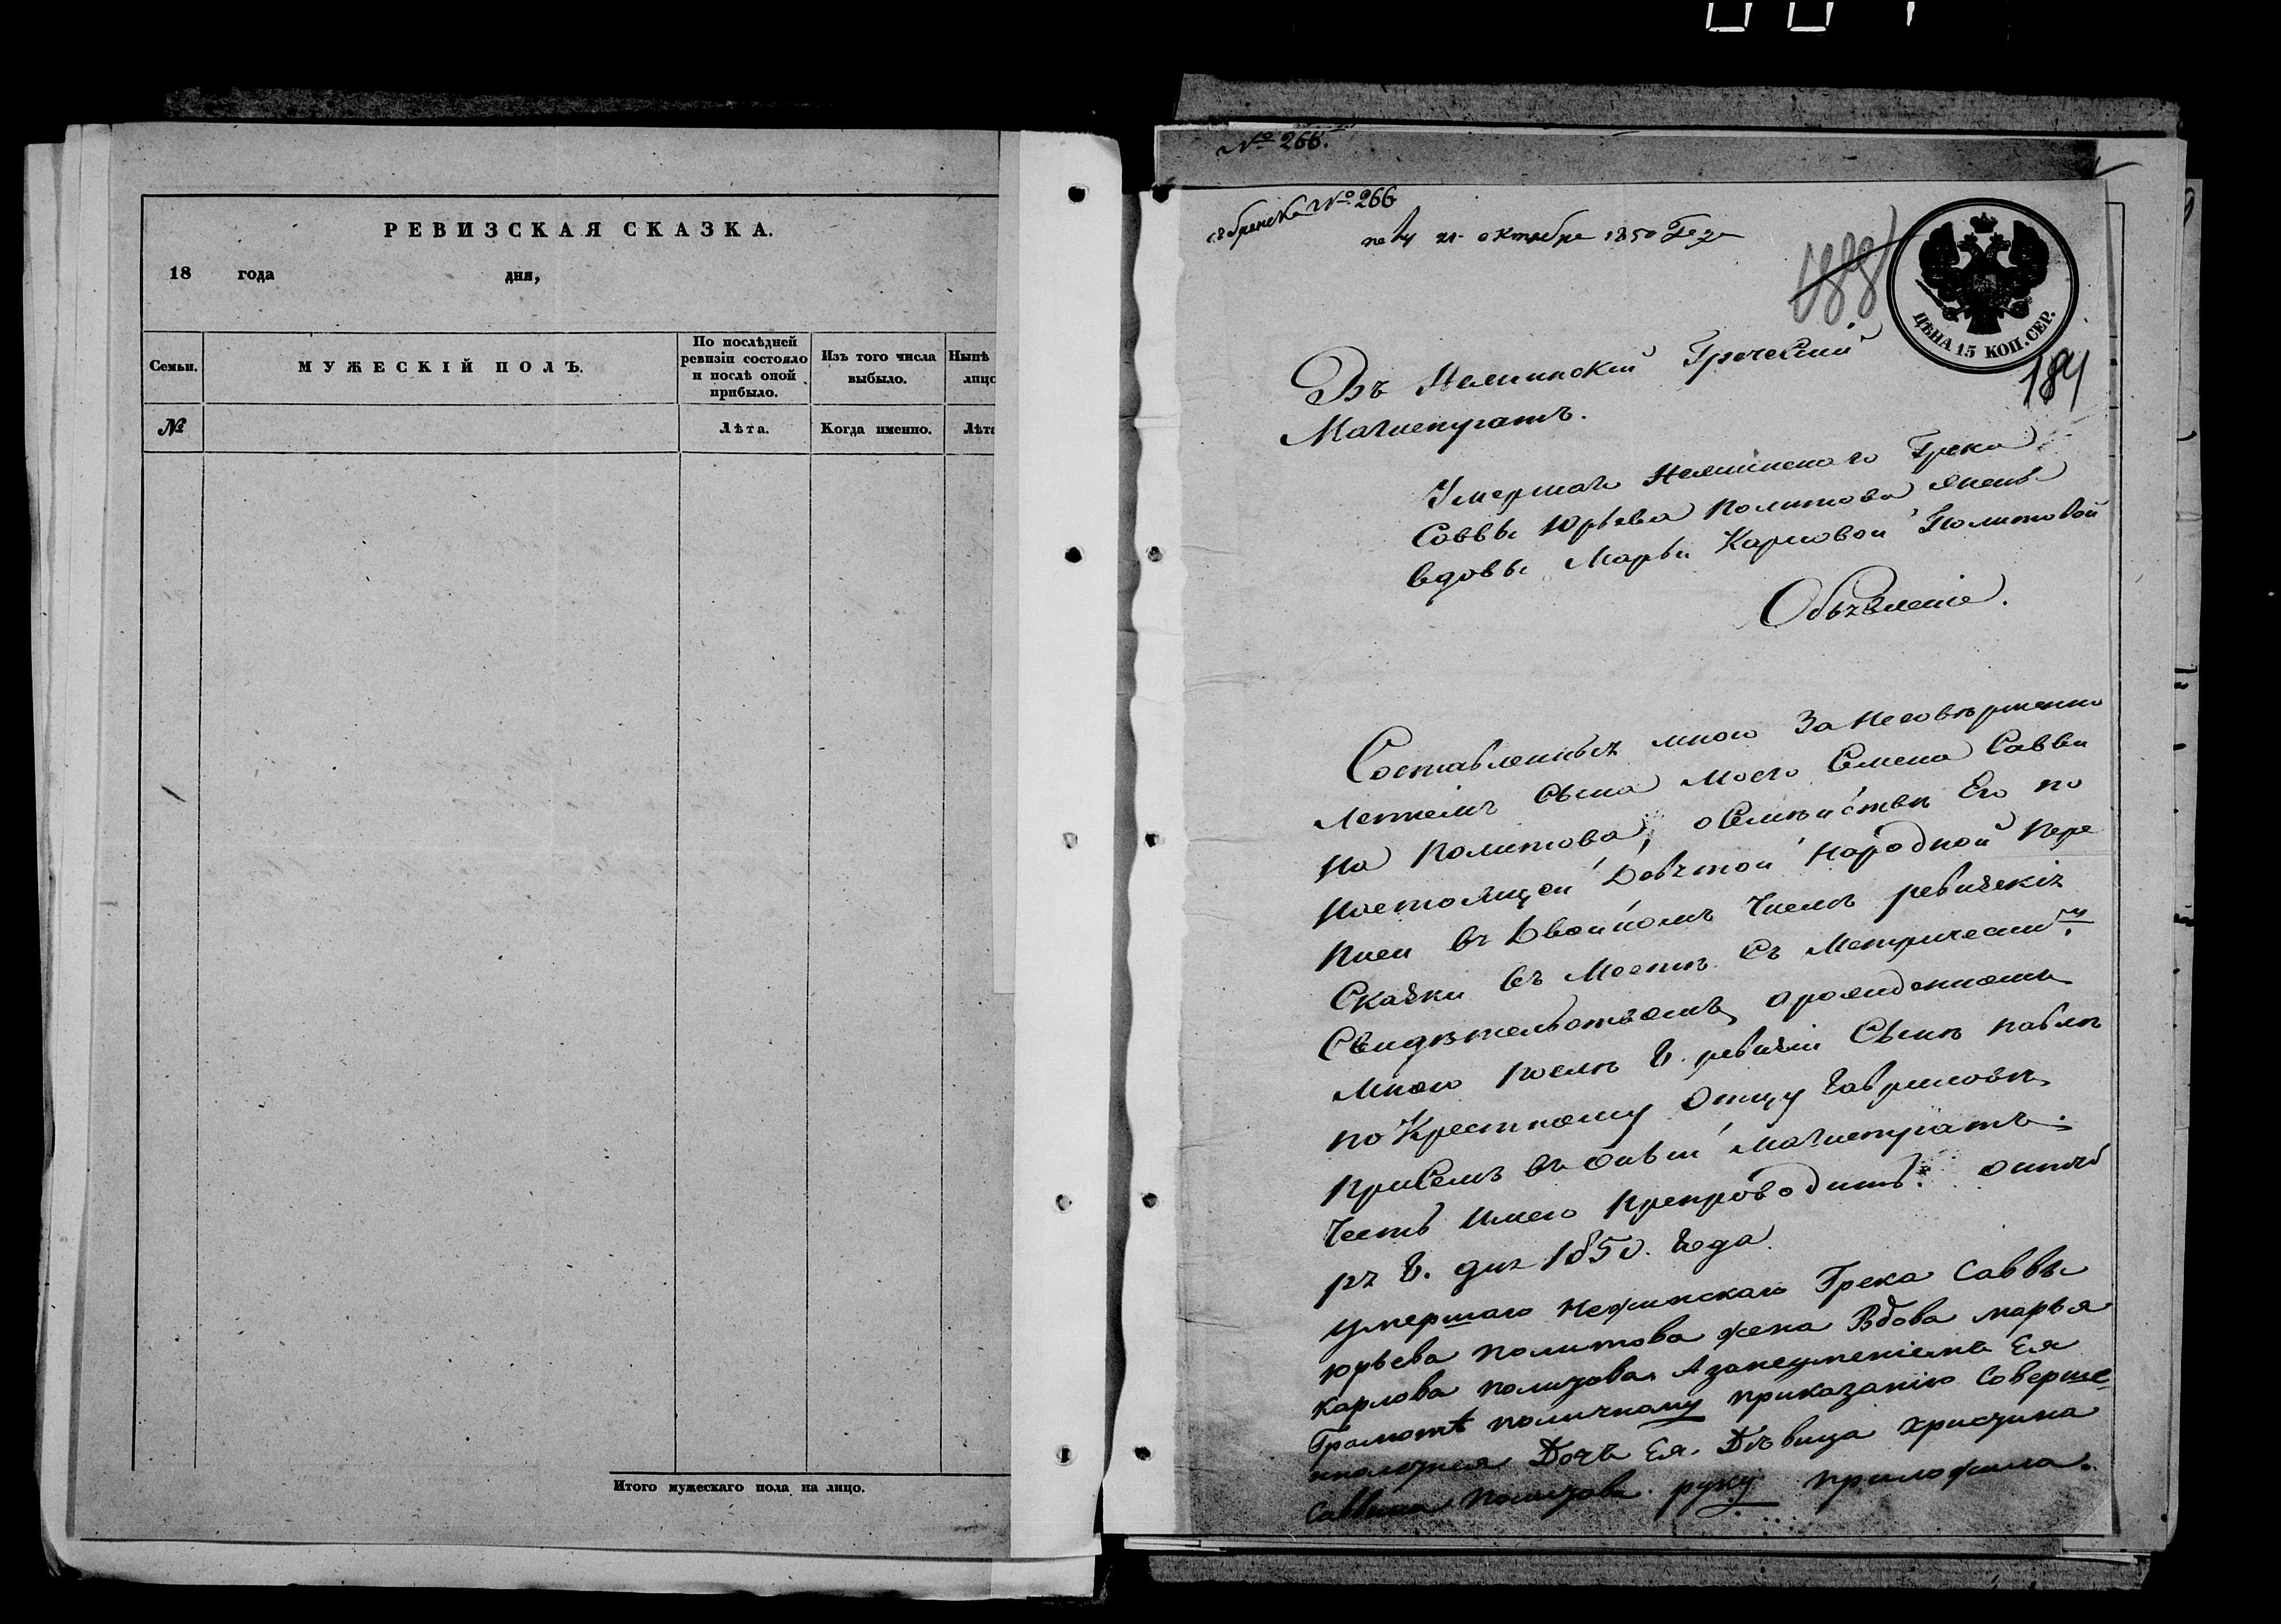 РЕВИЗСКАЯ СКАЗКА.
18 года дня,
Семьи.
МУЖЕСКІЙ ПОЛЪ.
По послѣдней
ревизіи состояло
и послѣ оной
прибыло.
Изъ того числа
выбыло.
Нынѣ
лицо
№
Лѣта.
Когда именно.
Лѣта
Итого мужескаго пола на лицо.
№ 266.
№ 266
21 октября 1850 Года
188
ЦѢНА 15 КОП. СЕР.
189
Въ Нежинскій Греческій
Магистратъ.
Умершаго Нежинскаго Грека
Саввы Юрьева Политова жены
вдовы Марьи Карповой Политовой
Объявленіе.
Составленныя мною За Несовершенно
летнемъ Сына моего Семена Савви
на Политова, о Семействѣ Его по
Настоящей Девятой Народной Пере
писи въ Двойномъ Числѣ ревизскія
Сказки въ Местѣ Съ Метрическимъ
Свидѣтельствомъ, о рожденномъ
Мною послѣ 8. ревизіи Сынѣ павлѣ
по Крестному Отцу Гавриловѣ,
присемъ въ оный Магистратъ
Честь Имею препроводить. октяб
ря 8. дня 1850. Года
умершаго Нежинскаго Грека Саввы
юрьева политова жена Вдова марья
карпова политова А занеуменіемъ Ея
Грамотѣ поличному приказанію Соверше
ннолетняя Дочь Ея. Дѣвица христина
саввина политова. руку приложила.